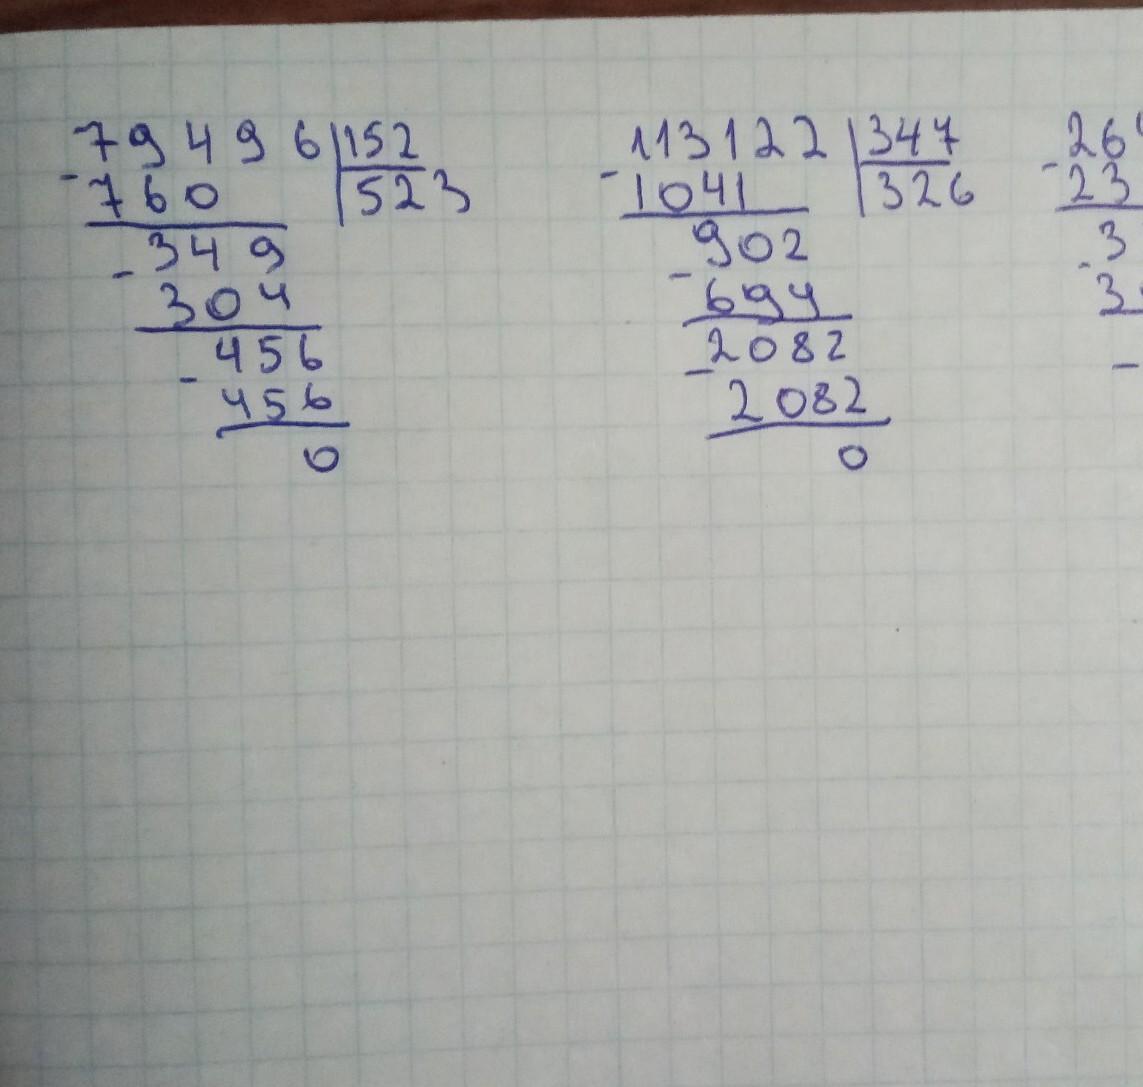 79496 152
- 760 523
- 349
304
- 456
456
0
113122 347
- 1041 326
- 902
694
- 2082
2082
0
26
- 23
- 3
3
-